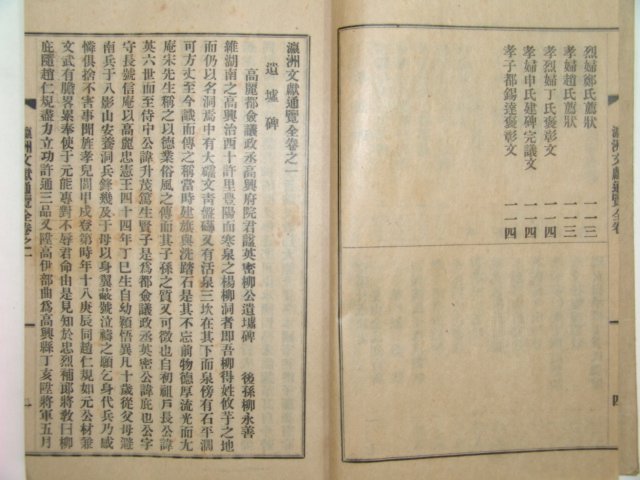 瀛洲文獻通覽全卷
烈婦鄭氏薦狀 一一三
孝婦趙氏薦狀 一一三
孝烈婦丁氏褒彰文 一一四
孝婦申氏建碑完議文 一一四
孝子都錫達褒彰文 一一四
四
瀛洲文獻通覽全卷之一
遺墟碑
高麗都僉議政丞高興府院君諡英密柳公遺墟碑 後孫柳永善
維湖南之高興治西十許里豊陽而寒泉之楊柳洞者即吾柳得姓攸芋之地
而仍以名洞焉中有大礎文靑盤礴又有活泉三坎在其下而泉傍有石平濶
可方丈至今識而傳之稱當時建旗與洗踏石是其不忘前物德厚流光而尤
庵宋先生稱之以德業俗風之傳而其子孫之質又可徵也自初祖戶長公諱
英六世而至侍中公諱升茂篤生賢子是爲都僉議政丞英密公諱庇也公字
守長號信庵以高麗忠憲王四十四年丁巳生自幼穎悟異凡十歲從父母避
南兵于八影山安養洞兵鋒幾及于母以身翼蔽號泣禱之願乞身代兵乃感
憐俱捨不害事聞旌孝兒閭甲戌登第時年十八庚辰同趙仁規如元公材兼
文武有膽畧累奉使于元能專對不辱君命由是見知於忠烈補郎將敎曰柳
庇隨趙仁規盡力立功許通三品又陞高伊部曲爲高興縣丁亥陞將軍五月
瀛洲文獻通覽全卷之一
一